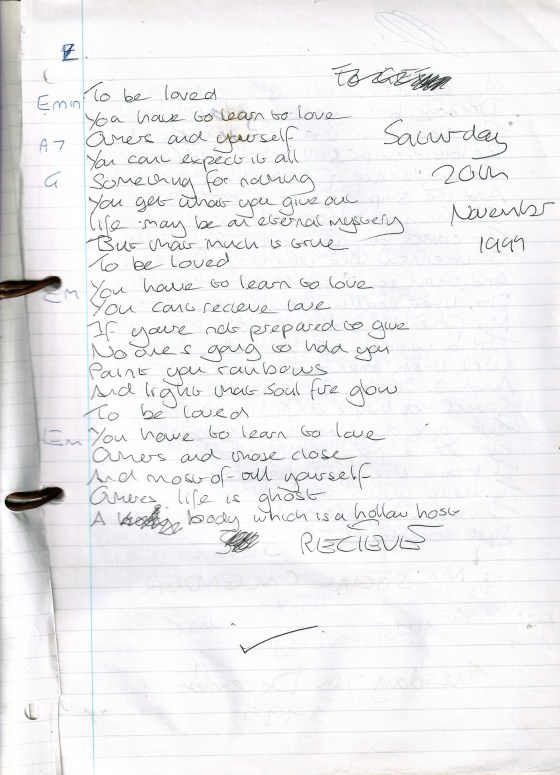 To be loved
Emin
You have to learn to love
A7
Others and yourself
Saturday
You cant expect it all
G
Something for nothing
20th
You get what you give out
life may be an eternal mystery
November
But that much is true
1999
To be loved
Em
You have to learn to love
You cant recieve love
If youre not prepared to give
No one's going to hold you
Paint you rainbows
And light that soul fire glow
To be loved
Em
You have to learn to love
Others and those close
And most of all yourself
Others life is ghost
A body which is a hollow host
RECIEVE